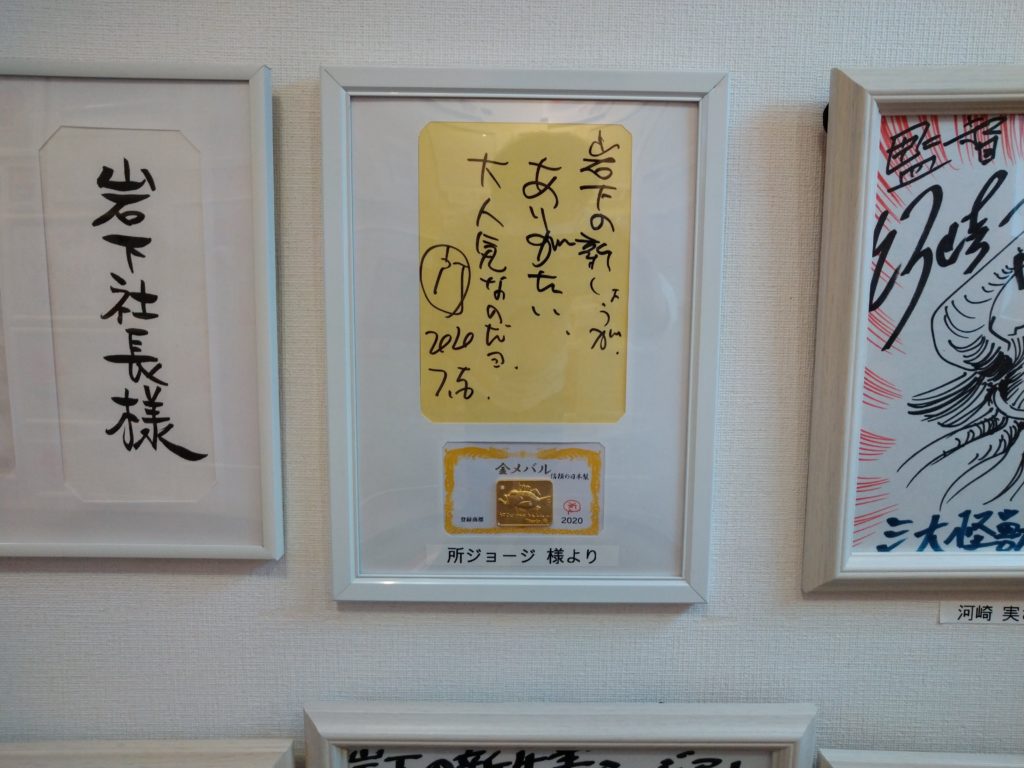 岩下社長様
岩下の新しょうが、
ありがたい、
大人気なのだヨ.
所
2020
7,吉.
金メバル
信頼の日本製
登録商標
2020
所ジョージ 様より
監督
河崎
三大怪獣
河崎 実
岩下の新生姜ミュージアム